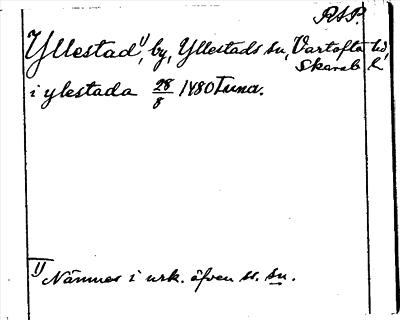 RAP.
Yllestad¹⁾, by, Yllestads sn, Vartofta hd,
Skarab. l.
i ylestada 28/8 1480 Tuna.
1) Nämnes i urk. äfven ss. sn.